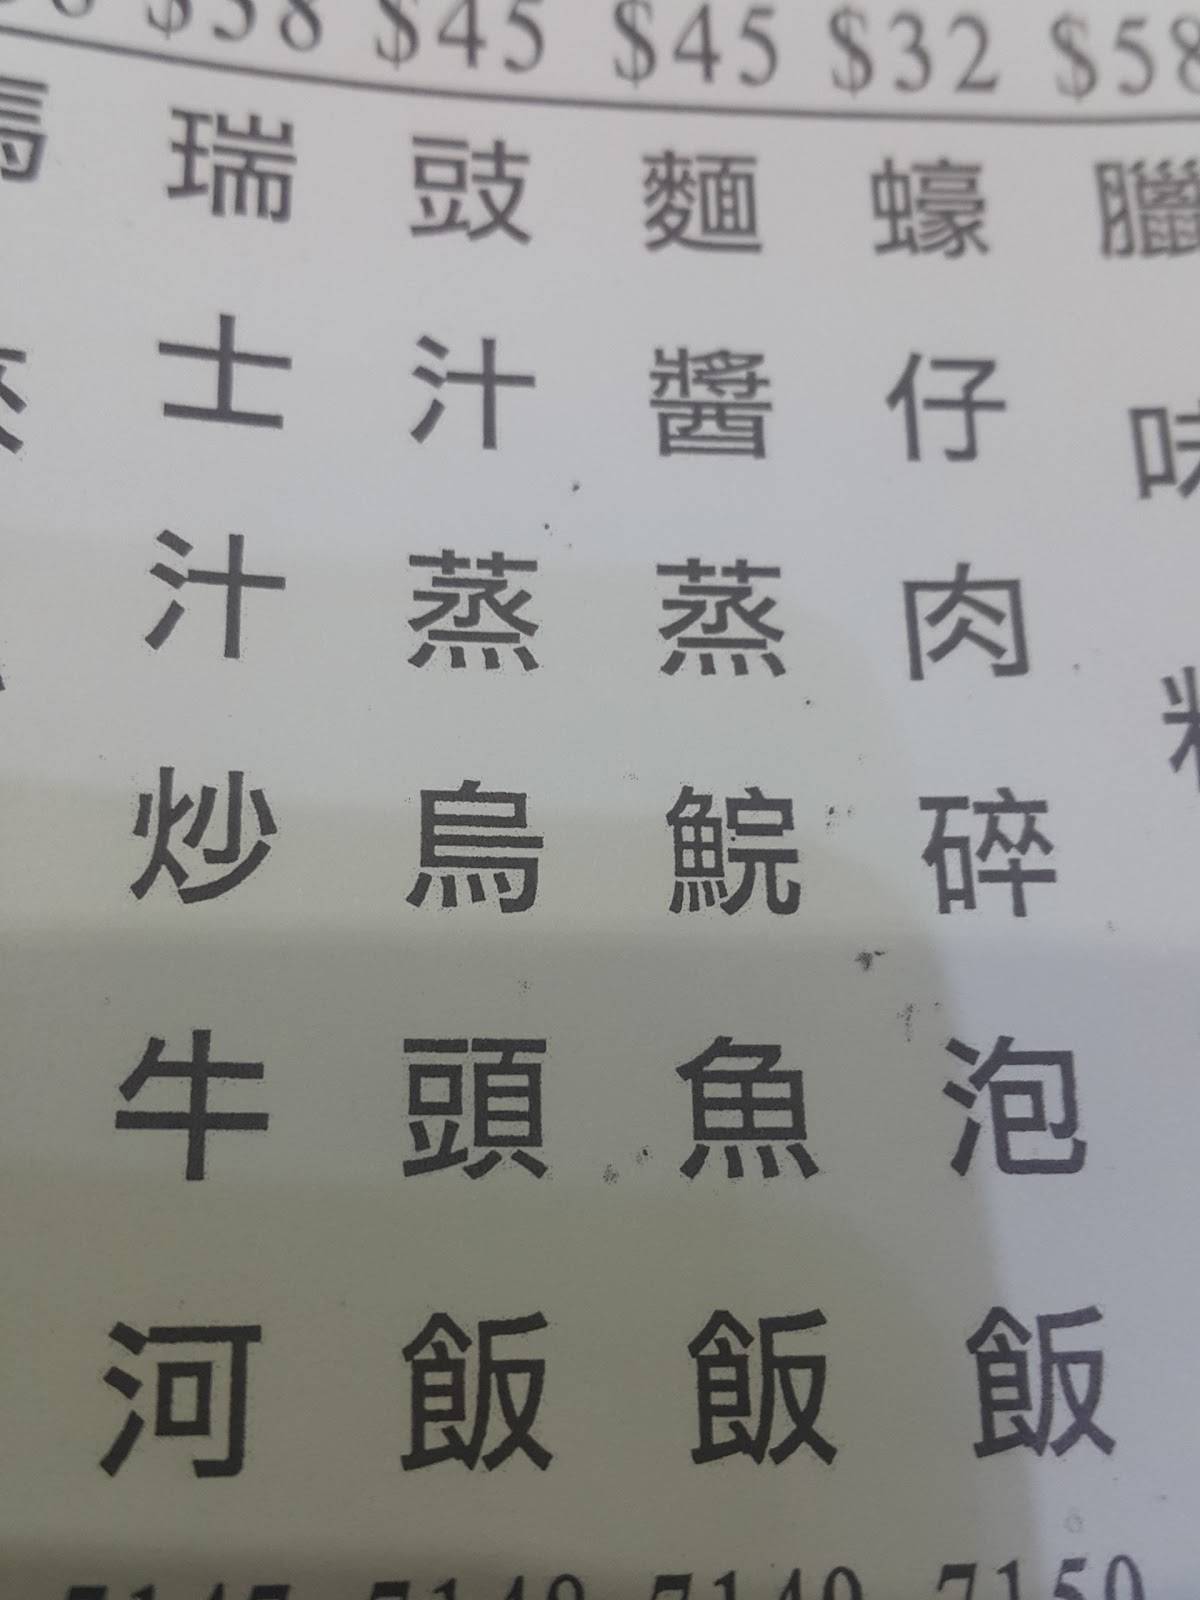 $58 $45 $45 $32 $58
瑞士汁炒牛河
豉汁蒸烏頭飯
麵醬蒸鯇魚飯
蠔仔肉碎泡飯
臘味
7147 7148 7149 7150